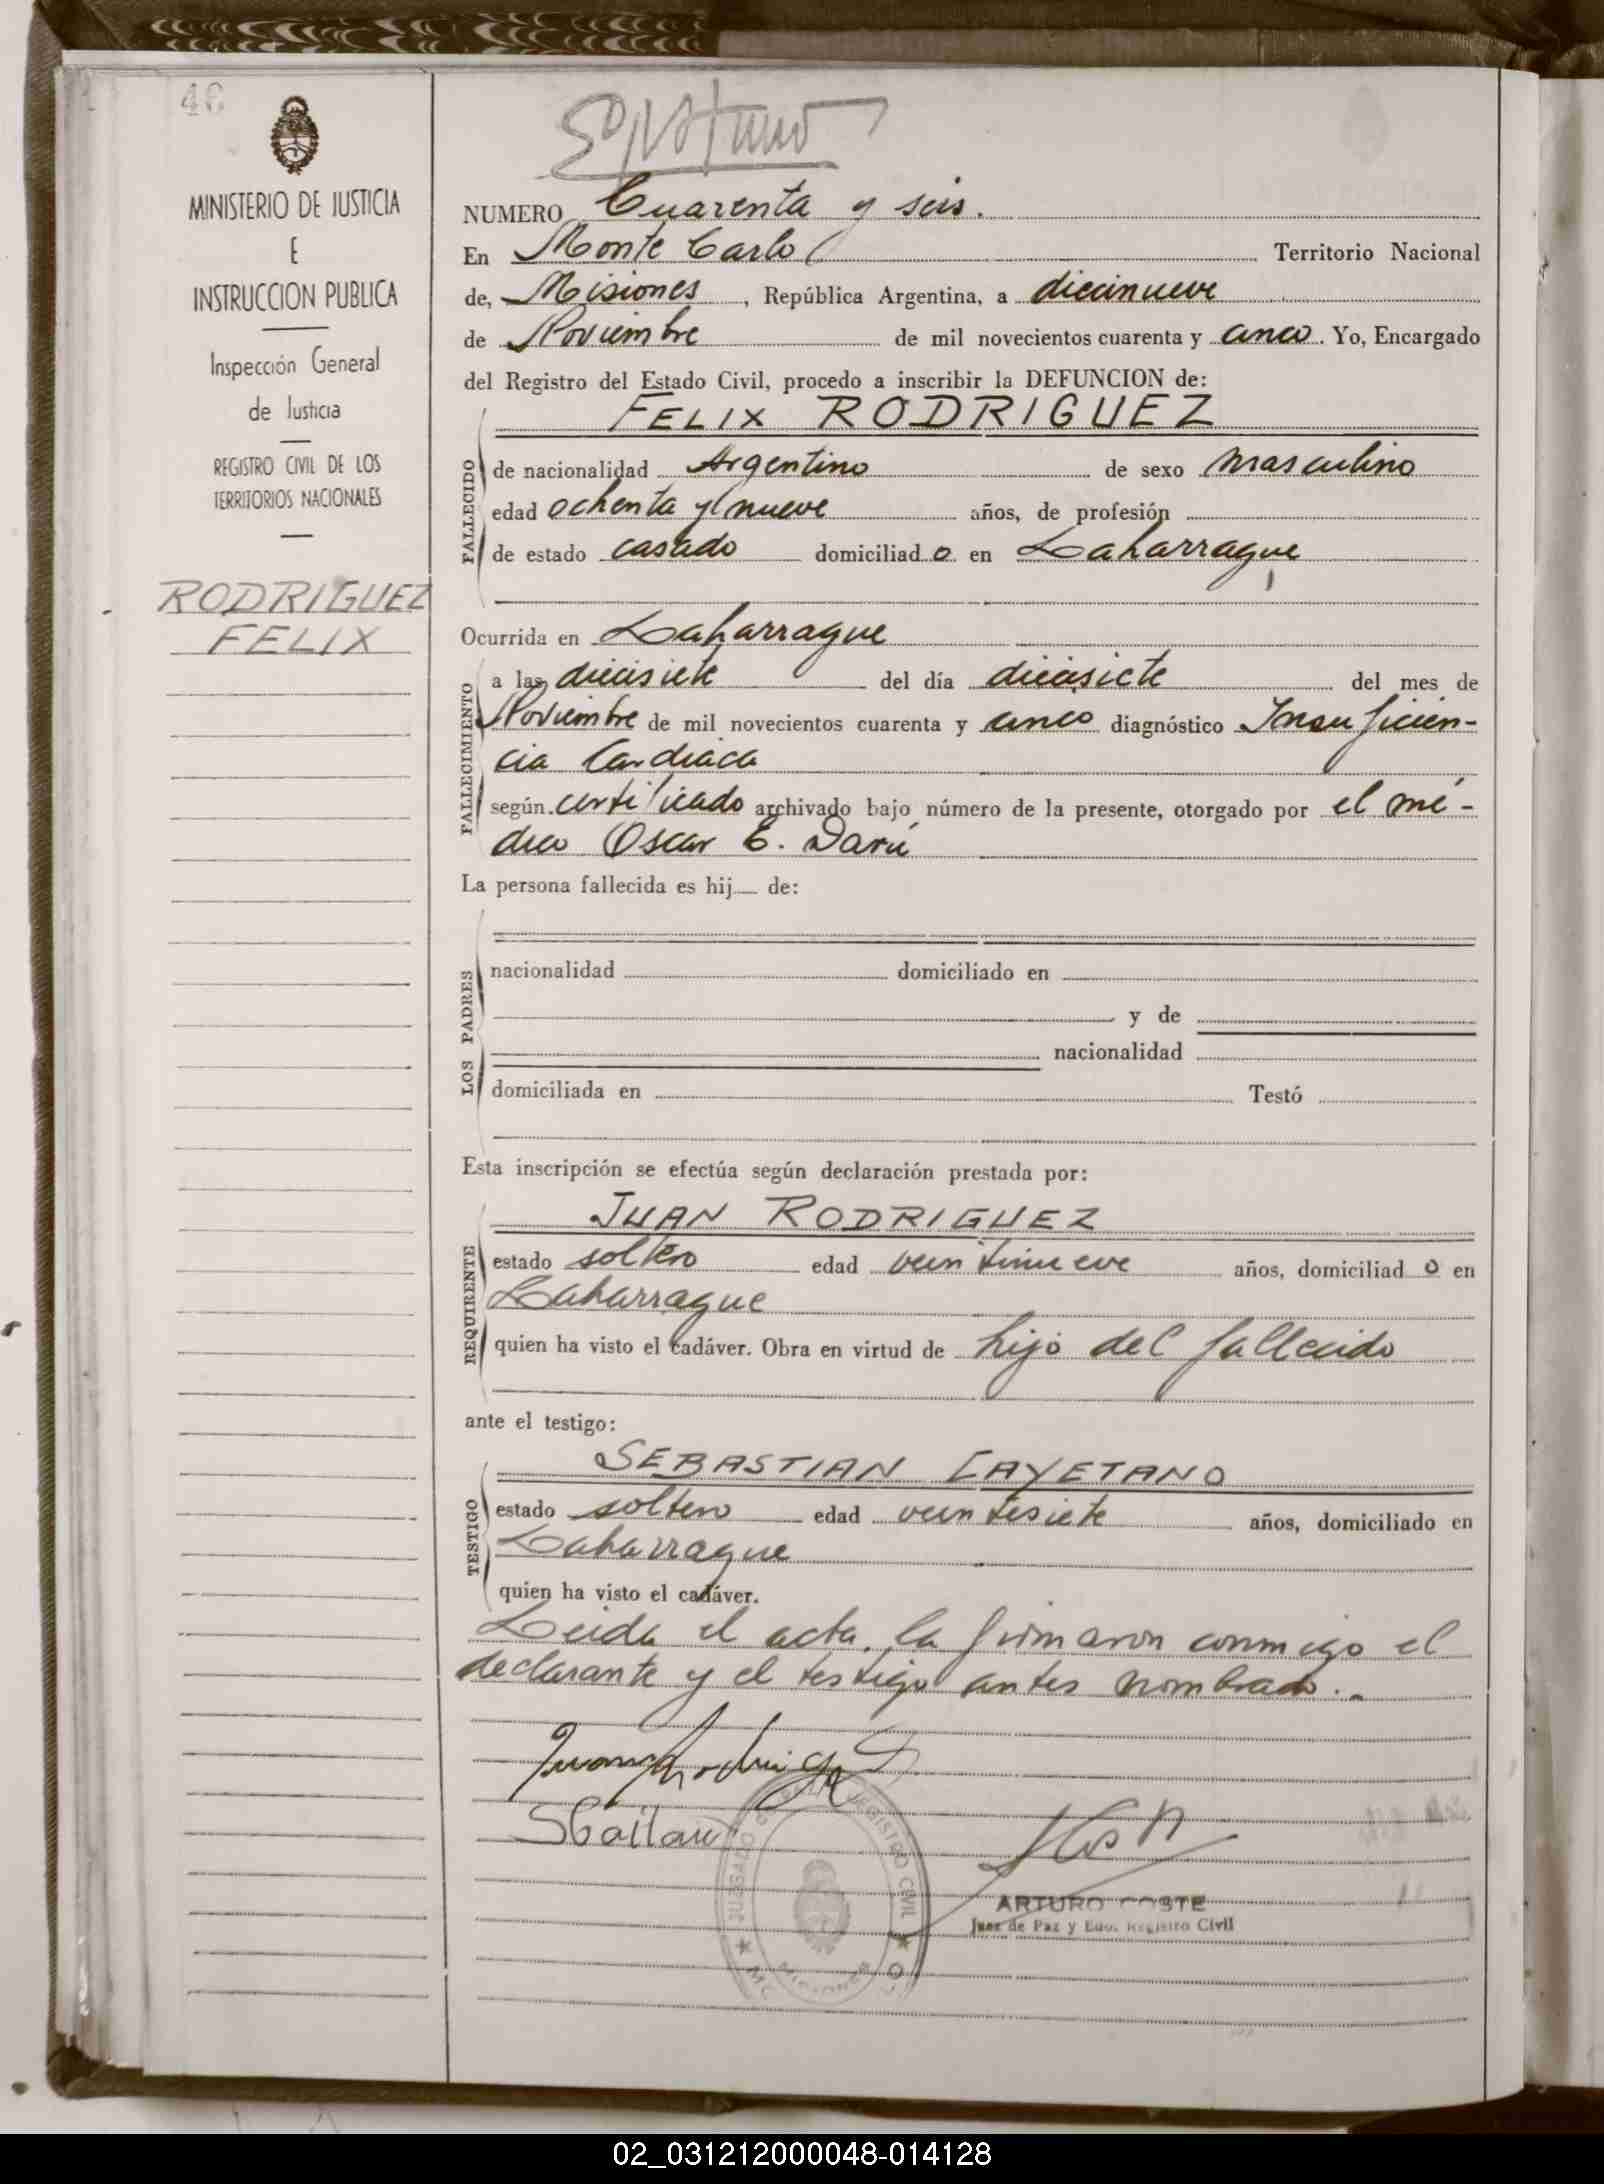 46
MINISTERIO DE JUSTICIA
E
INSTRUCCION PUBLICA
Inspección General
de Justicia
REGISTRO CIVIL DE LOS
TERRITORIOS NACIONALES
RODRIGUEZ
FELIX
NUMERO Cuarenta y seis.
En Monte Carlo Territorio Nacional
de, Misiones, República Argentina, a diecinueve
de Noviembre de mil novecientos cuarenta y cinco. Yo, Encargado
del Registro del Estado Civil, procedo a inscribir la DEFUNCION de:
FELIX RODRIGUEZ
FALLECIDO
de nacionalidad Argentino de sexo masculino
edad ochenta y nueve años, de profesión
de estado casado domiciliado en Laharrague
Ocurrida en Laharrague
FALLECIMIENTO
a las diecisiete del día diecisiete del mes de
Noviembre de mil novecientos cuarenta y cinco diagnóstico Insuficien-
cia Cardiaca
según certificado archivado bajo número de la presente, otorgado por el mé-
dico Oscar E. Darú
La persona fallecida es hij__ de:
LOS PADRES
nacionalidad domiciliado en
y de
nacionalidad
domiciliada en Testó
Esta inscripción se efectúa según declaración prestada por:
JUAN RODRIGUEZ
REQUIRENTE
estado soltero edad veintinueve años, domiciliado en
Laharrague
quien ha visto el cadáver. Obra en virtud de hijo del fallecido
ante el testigo:
SEBASTIAN CAYETANO
TESTIGO
estado soltero edad veintisiete años, domiciliado en
Laharrague
quien ha visto el cadáver.
Leida el acta, la firmaron conmigo el
declarante y el testigo antes nombrado..
Juan Rodriguez
JUZGADO REGISTRO CIVIL
MISIONES
ARTURO COSTE
Juez de Paz y Edo. Registro Civil
02_031212000048-014128